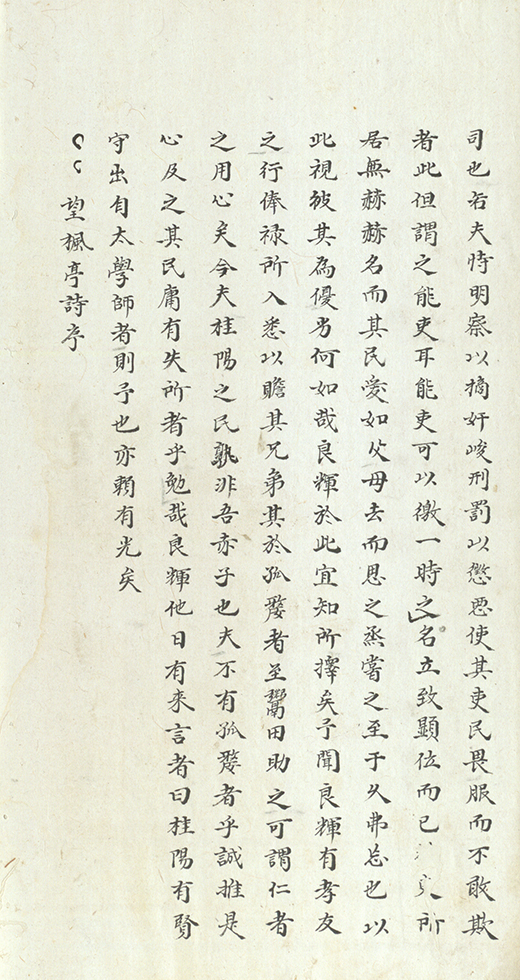 司也若夫恃明察以摘奸峻刑罰以懲惡使其吏民畏服而不敢欺
者此但謂之能吏耳能吏可以徼一時之名立致顯位而已 吏所
居無赫赫名而其民愛如父母去而思之烝嘗之至于久弗忘也以
此視彼其為優劣何如哉良輝於此宜知所擇矣予聞良輝有孝友
之行俸祿所入悉以贍其兄弟其於孤嫠者至鬻田助之可謂仁者
之用心矣今夫桂陽之民孰非吾赤子也夫不有孤嫠者乎誠推是
心及之其民庸有失所者乎勉哉良輝他日有來言者曰桂陽有賢
守出自太學師者則予也亦賴有光矣
望楓亭詩序